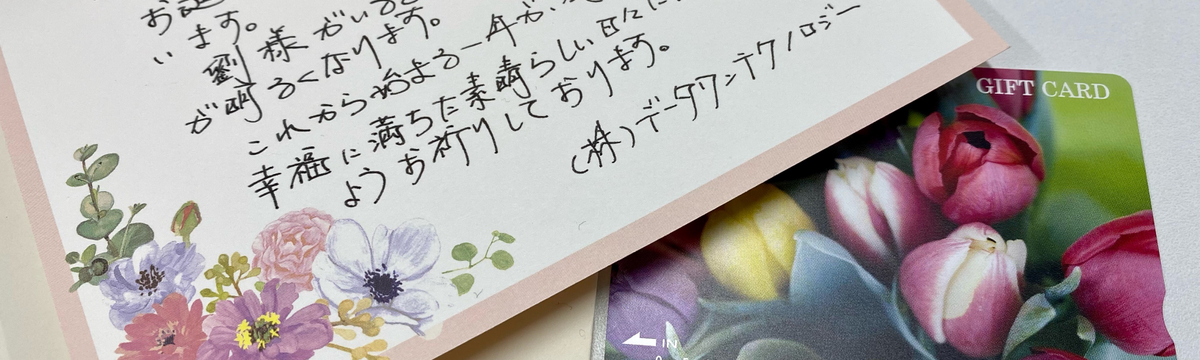 お誕
います。
劉様がいると
が明るくなります。
これから始まる一年が
幸福に満ちた素晴らしい日々に
ようお祈りしております。
(株)データワンテクノロジー
GIFT CARD
IN